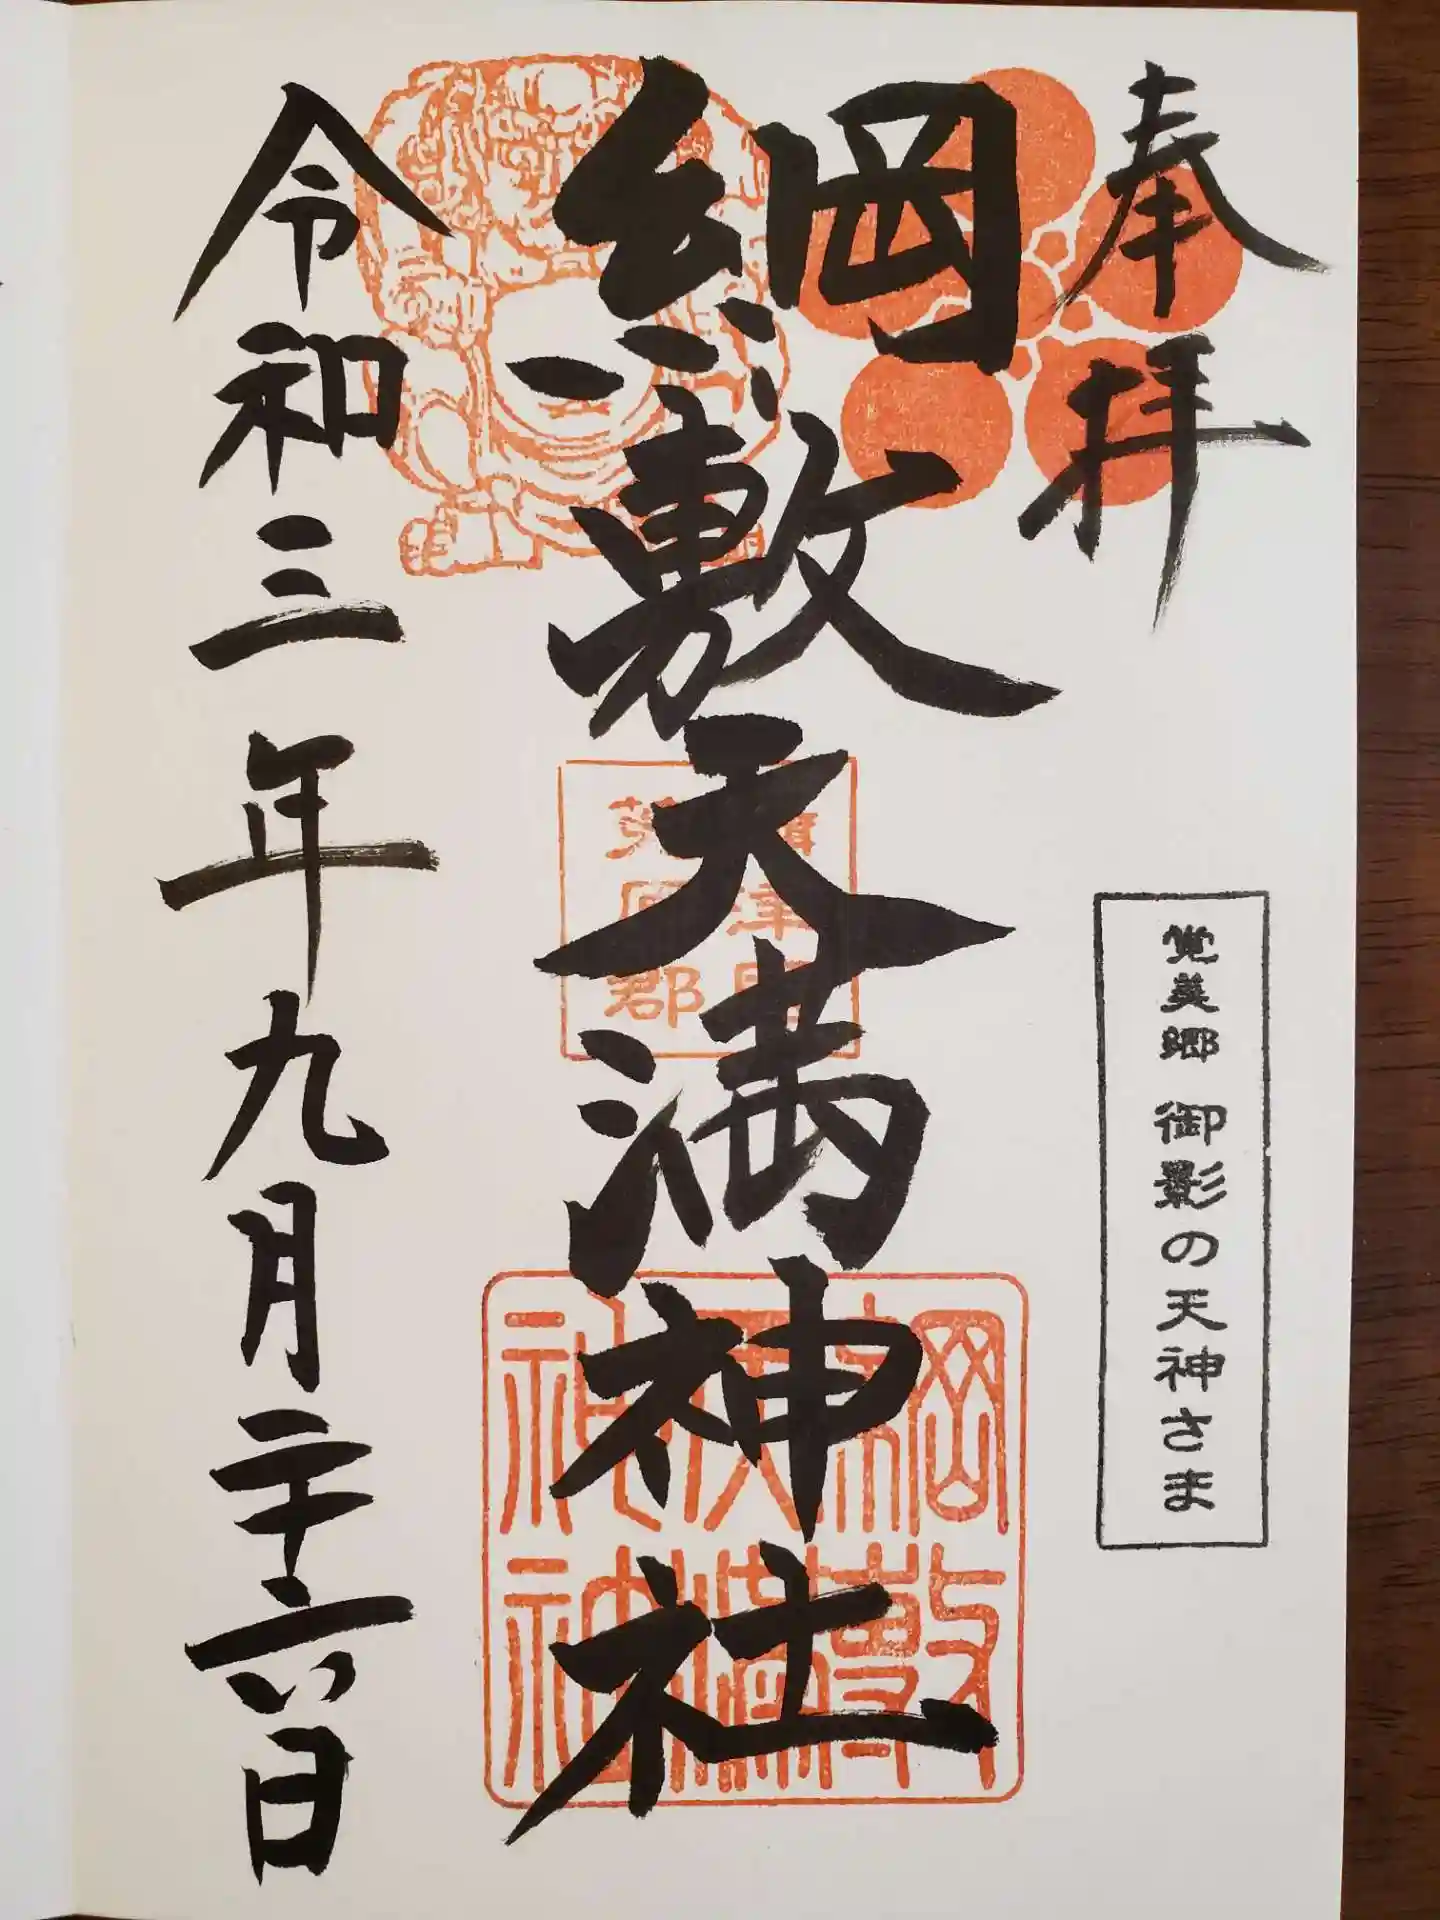 奉拝
覚美郷 御影の天神さま
綱敷天満神社
令和三年九月二十六日
綱敷
天満
神社